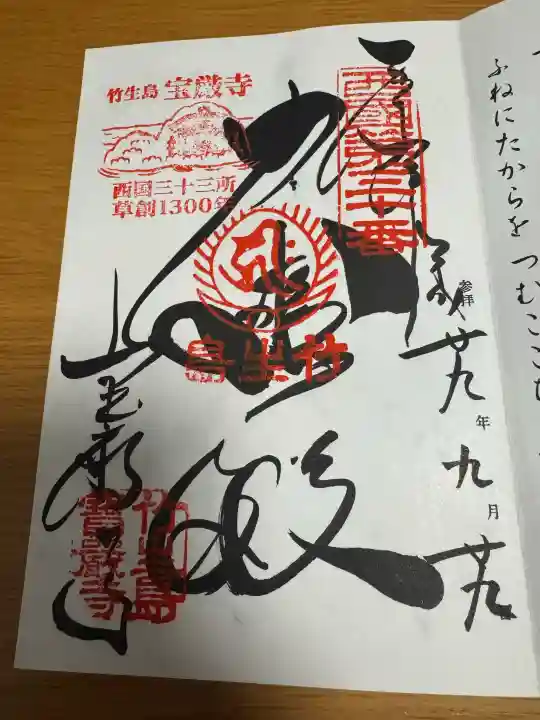 ふねにたからを つむここち
参拝 廿九年九月廿九
西國第三十番
大悲殿
竹生島
竹生島 宝厳寺
西国三十三所
草創1300年
宝厳寺
竹生島
寶嚴寺